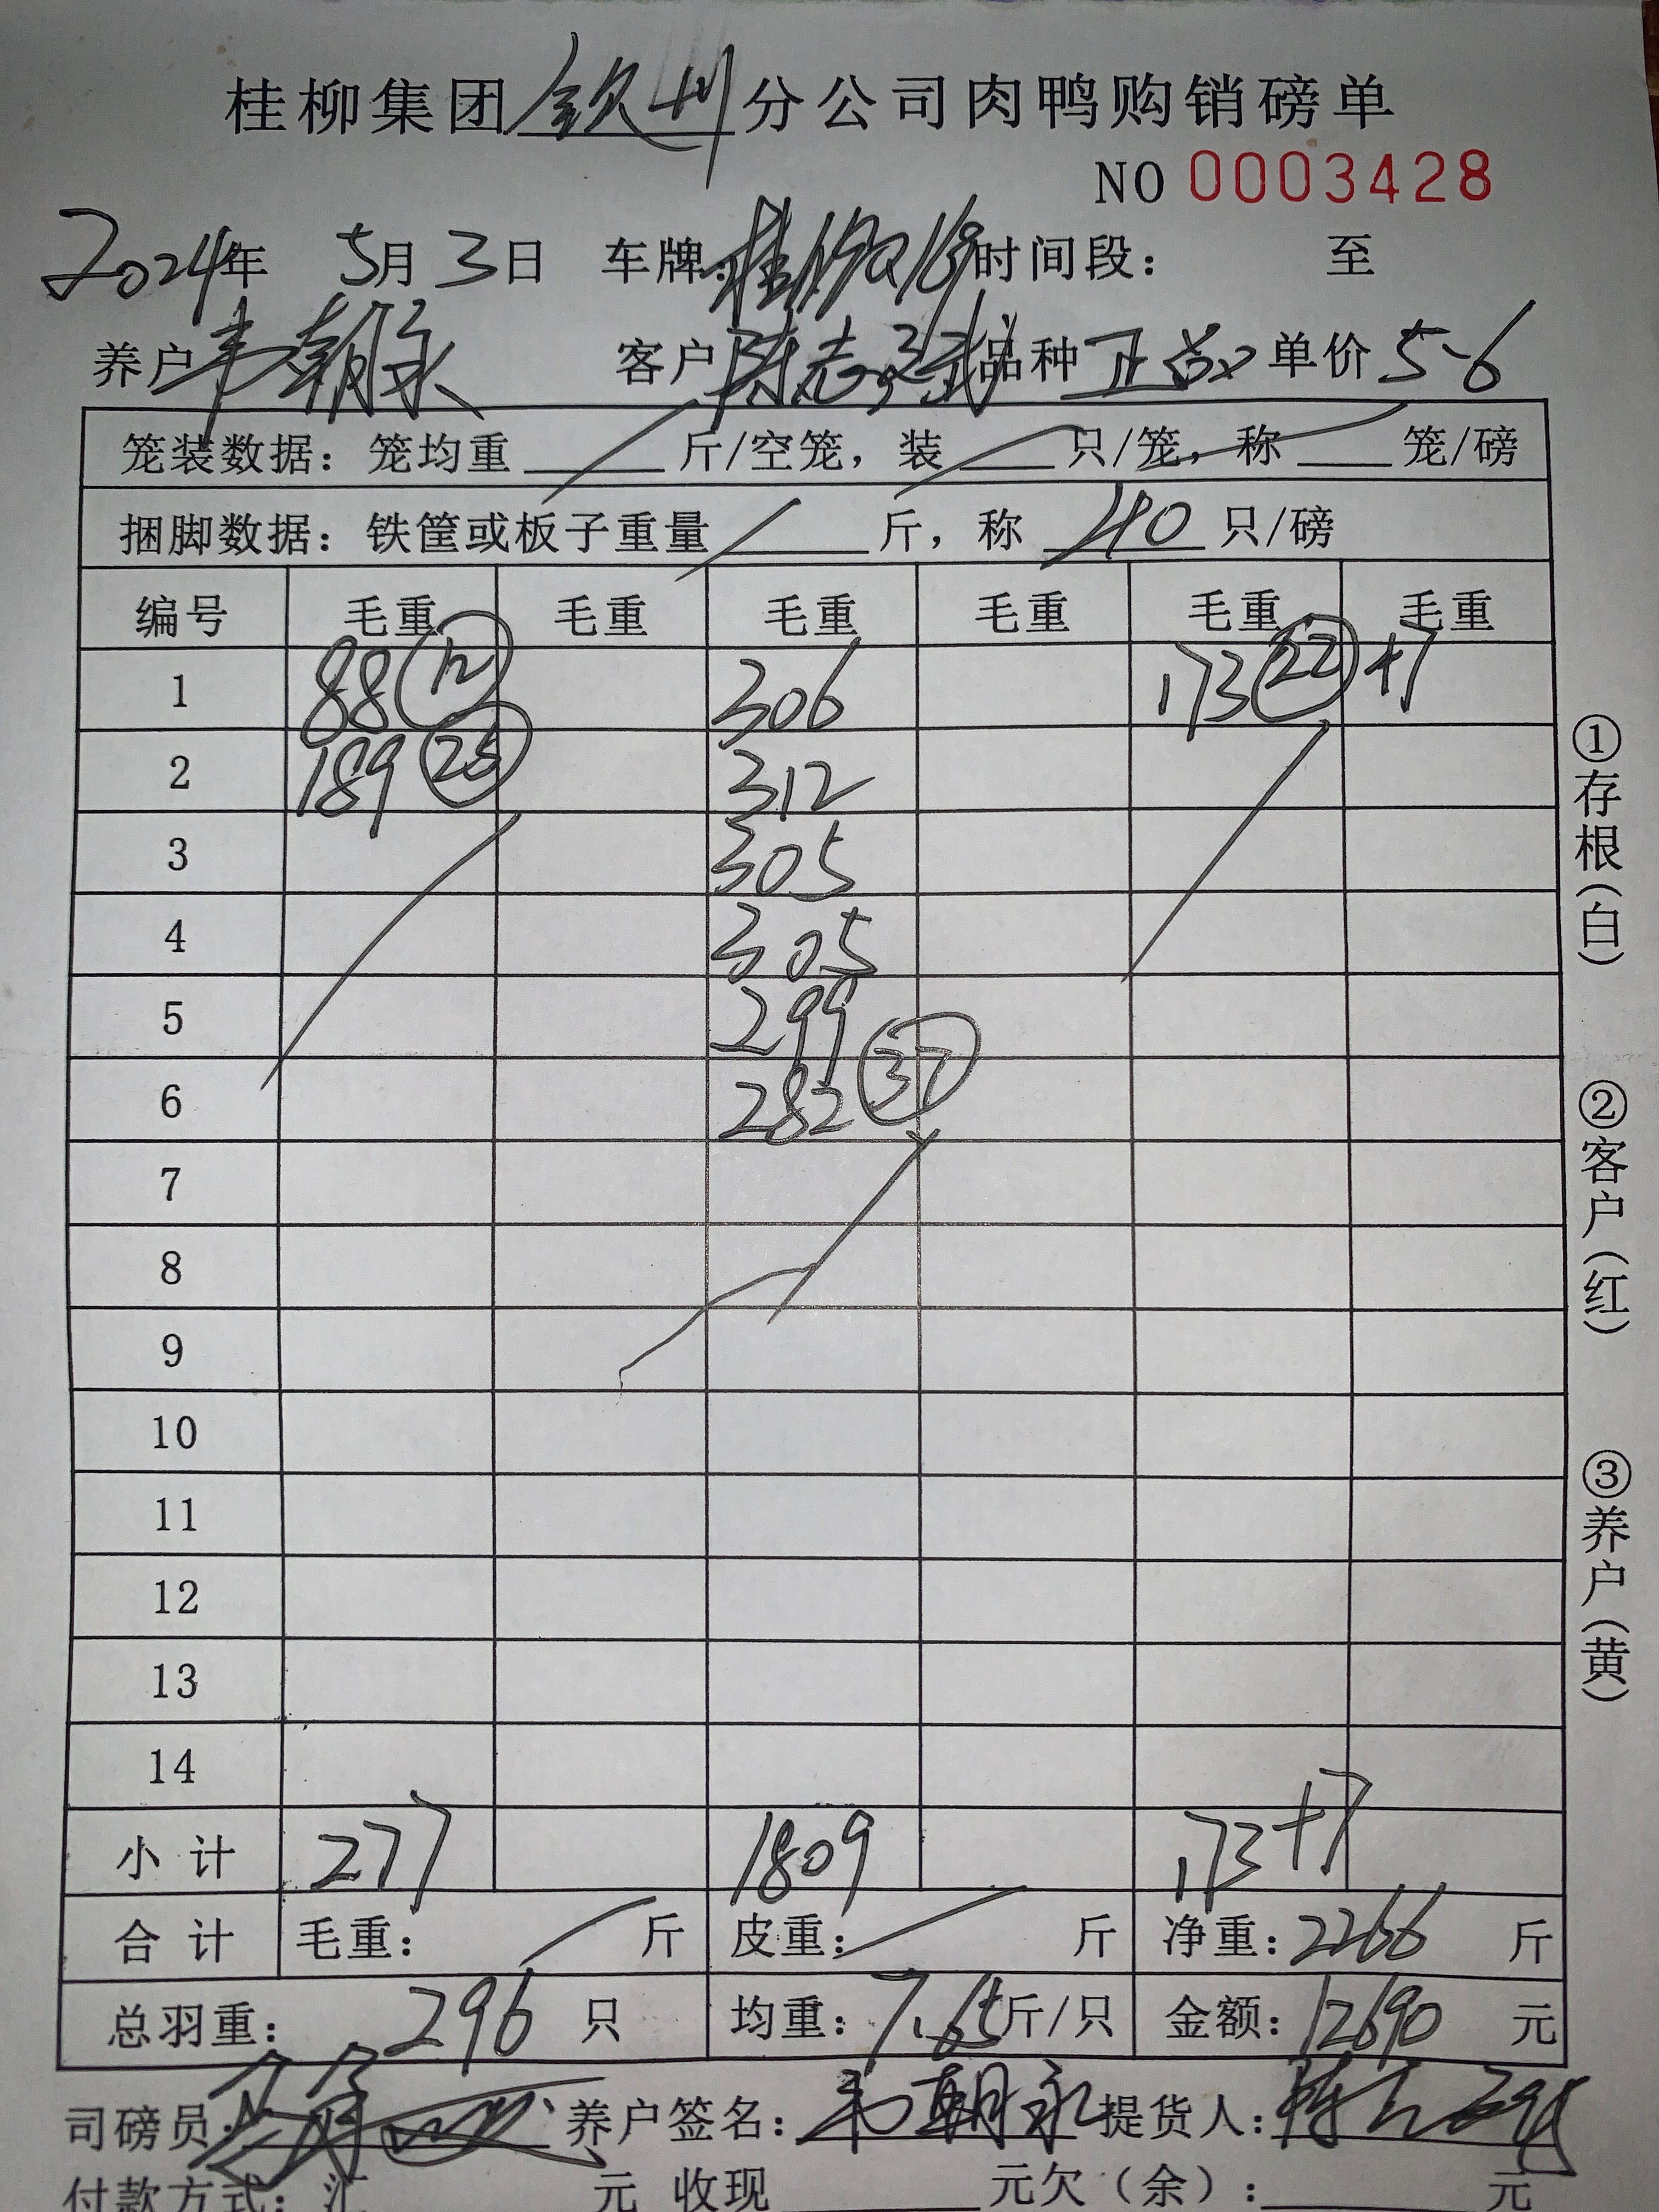 桂柳集团钦州分公司肉鸭购销磅单
NO 0003428
2024年 5月3日 车牌: 时间段: 至
养户韦朝永 客户陈志强 品种正品 单价5-6
笼装数据: 笼均重 斤/空笼, 装 只/笼, 称 笼/磅
捆脚数据: 铁筐或板子重量 斤, 称 40 只/磅
编号 毛重 毛重 毛重 毛重 毛重 毛重
1 88 12 306 173 22 +7
2 189 25 312
3 305
4 305
5 299
6 282 37
7
8
9
10
11
12
13
14
小计 277 1809 173+7
合计 毛重: 斤 皮重: 斤 净重: 2266 斤
总羽重: 296 只 均重: 7.65斤/只 金额: 12690 元
司磅员: 养户签名: 韦朝永 提货人:
付款方式: 汇 元 收现 元欠(余): 元
①存根(白)
②客户(红)
③养户(黄)